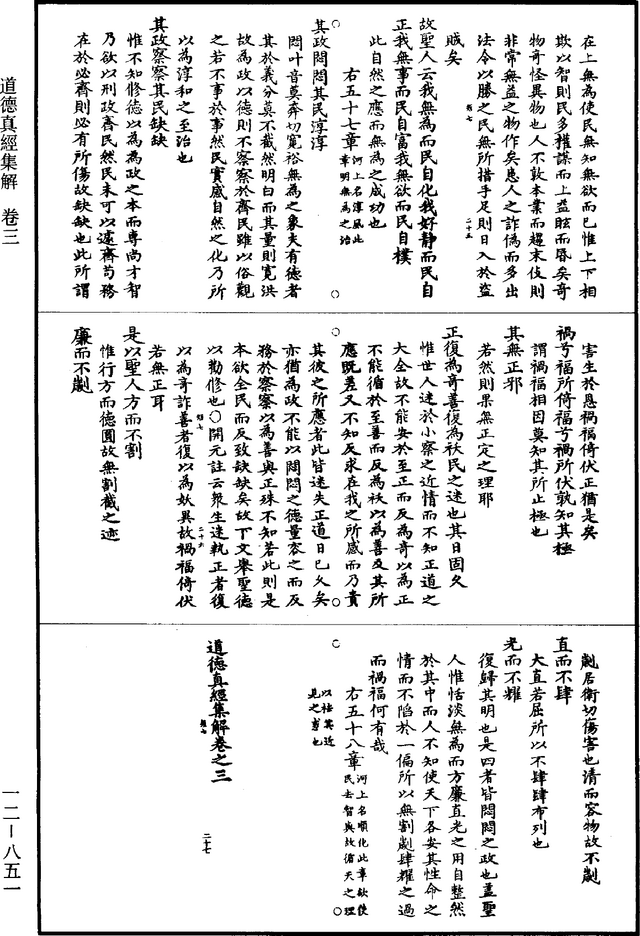 道德真經集解　卷三
在上無為使民無知無欲而已惟上下相
欺以智則民多權謀而上益眩而昏矣奇
物奇怪異物也人不敦本業而趨末伎則
非常無益之物作矣患人之詐偽而多出
法令以勝之民無所措手足則日入於盜
賊矣
二十五
故聖人云我無為而民自化我好靜而民自
正我無事而民自富我無欲而民自樸
此自然之應而無為之成功也
右五十七章河上名淳風此章明無為之治
其政悶悶其民淳淳
悶叶音莫奔切寬裕無為之象夫有德者
其於義分莫不截然明白而其量則寬洪
故為政以德則不察察於齊民雖以俗觀
之若不事於事然民實感自然之化乃所
以為淳和之至治也
其政察察其民缺缺
惟不知修德以為為政之本而專尚才智
乃欲以刑政齊民然民未可以遽齊苟務
在於必齊則必有所傷故缺缺也此所謂
害生於恩禍福倚伏正猶是矣
禍兮福所倚福兮禍所伏孰知其極
謂禍福相因莫知其所止極也
其無正邪
若然則果無正定之理耶
正復為奇善復為祅民之迷也其日固久
惟世人迷於小察之近情而不知正道之
大全故不能安於至正而反為奇以為正
不能循於至善而反為祅以為善及其所
應既差又不知反求在我之所感而乃責
其彼之所應者此皆迷失正道日已久矣
亦猶為政不能以悶悶之德量容之而反
務於察察以為善與正殊不知若此則是
本欲全民而反致缺缺矣故下文舉聖德
以勸修也○開元註云眾生迷執正者復
二十六
以為奇詐善者復以為妖異故禍福倚伏
若無正耳
是以聖人方而不割
惟行方而德圓故無割截之迹
廉而不劌
劌居衛切傷害也清而容物故不劌
直而不肆
大直若屈所以不肆肆布列也
光而不耀
復歸其明也是四者皆悶悶之政也蓋聖
人惟恬淡無為而方廉直光之用自整然
於其中而人不知使天下各安其性命之
情而不陷於一偏所以無割劌肆耀之過
而禍福何有哉
右五十八章河上名順化此章欲使民去智與故循天之理
道德真經集解卷之三
二十七
一二—八五一